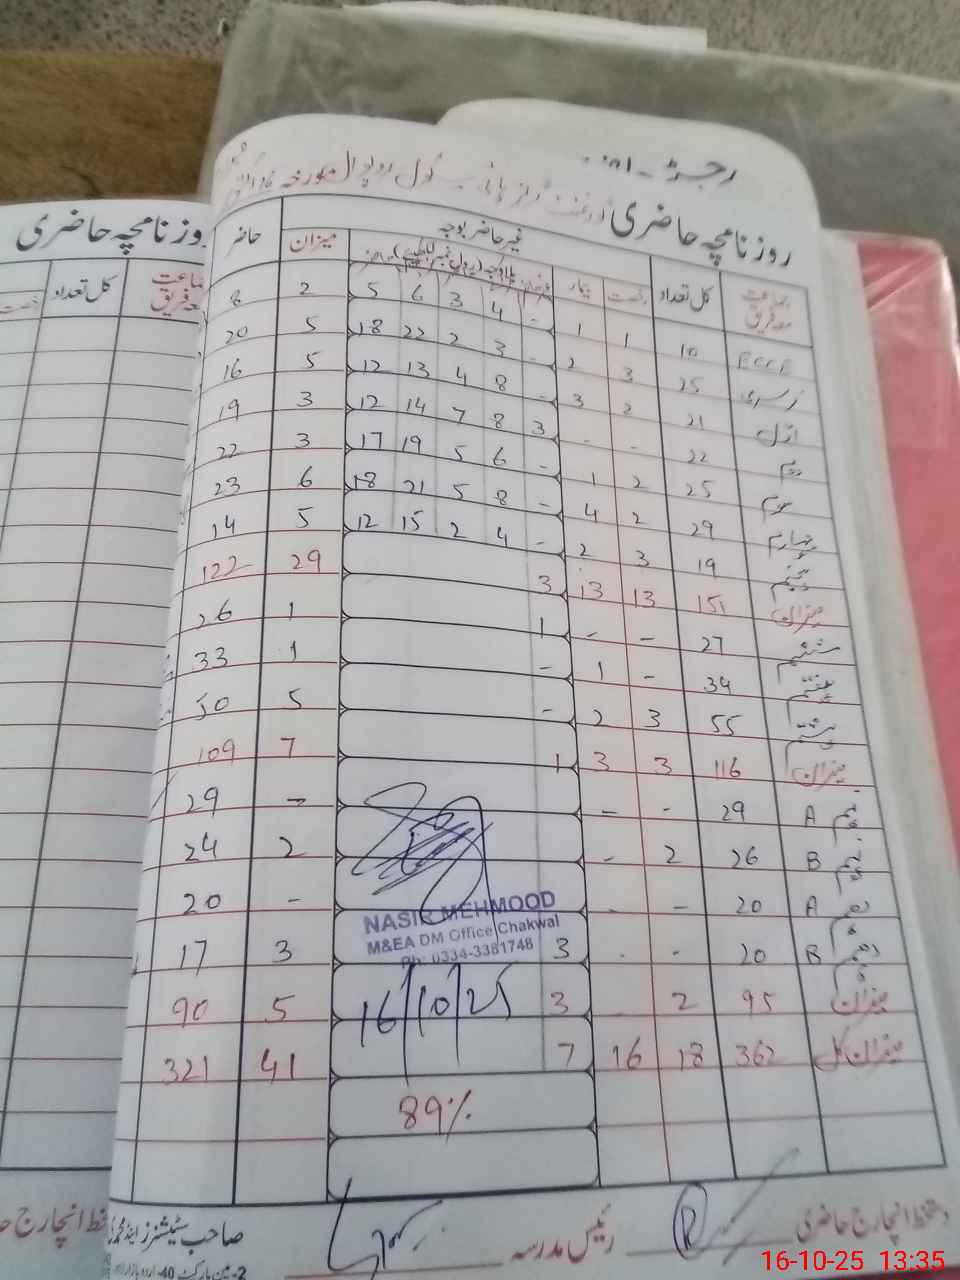 روزنامچہ حاضری
روزنامچہ حاضری
جماعت معہ فریق کل تعداد رخصت بیمار غیر حاضر بوجہ میزان حاضر
کل تعداد
ECCE 10 1 1 - 4 3 6 5 2 8
نرسری 25 3 2 - 3 2 22 18 5 20
اول 21 2 3 - 8 4 13 12 5 16
دوم 22 - - 3 8 7 14 12 3 19
سوم 25 2 1 - 6 5 19 17 3 22
چہارم 29 2 4 - 8 5 21 18 6 23
پنجم 19 3 2 - 4 2 15 12 5 14
میزان 151 13 13 3 29 122
ششم 27 - - 1 1 26
ہفتم 34 - 1 - 1 33
ہشتم 55 3 2 - 5 50
میزان 116 3 3 1 7 109
نہم A 29 - - - 29
نہم B 26 2 - 2 24
دہم A 20 - - - 20
NASIR MEHMOOD
M&EA DM Office Chakwal
Ph: 0334-3381748
دہم B 20 - - 3 3 17
16/10/25
میزان 95 2 - 3 5 90
میزان کل 362 18 16 7 41 321
89%
دستخط انچارج حاضری
رئیس مدرسہ
16-10-25 13:35